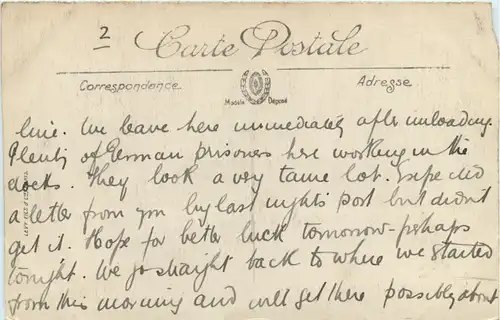 2
Carte Postale
Correspondance
Adresse
Modèle Déposé
line. We leave here immediately after unloading.
Plenty of German prisoners here working in the
docks. They look a very tame lot. Expected
a letter from you by last night's post but didn't
get it. Hope for better luck tomorrow - perhaps
tonight. We go straight back to where we started
from this morning and will get there possibly about